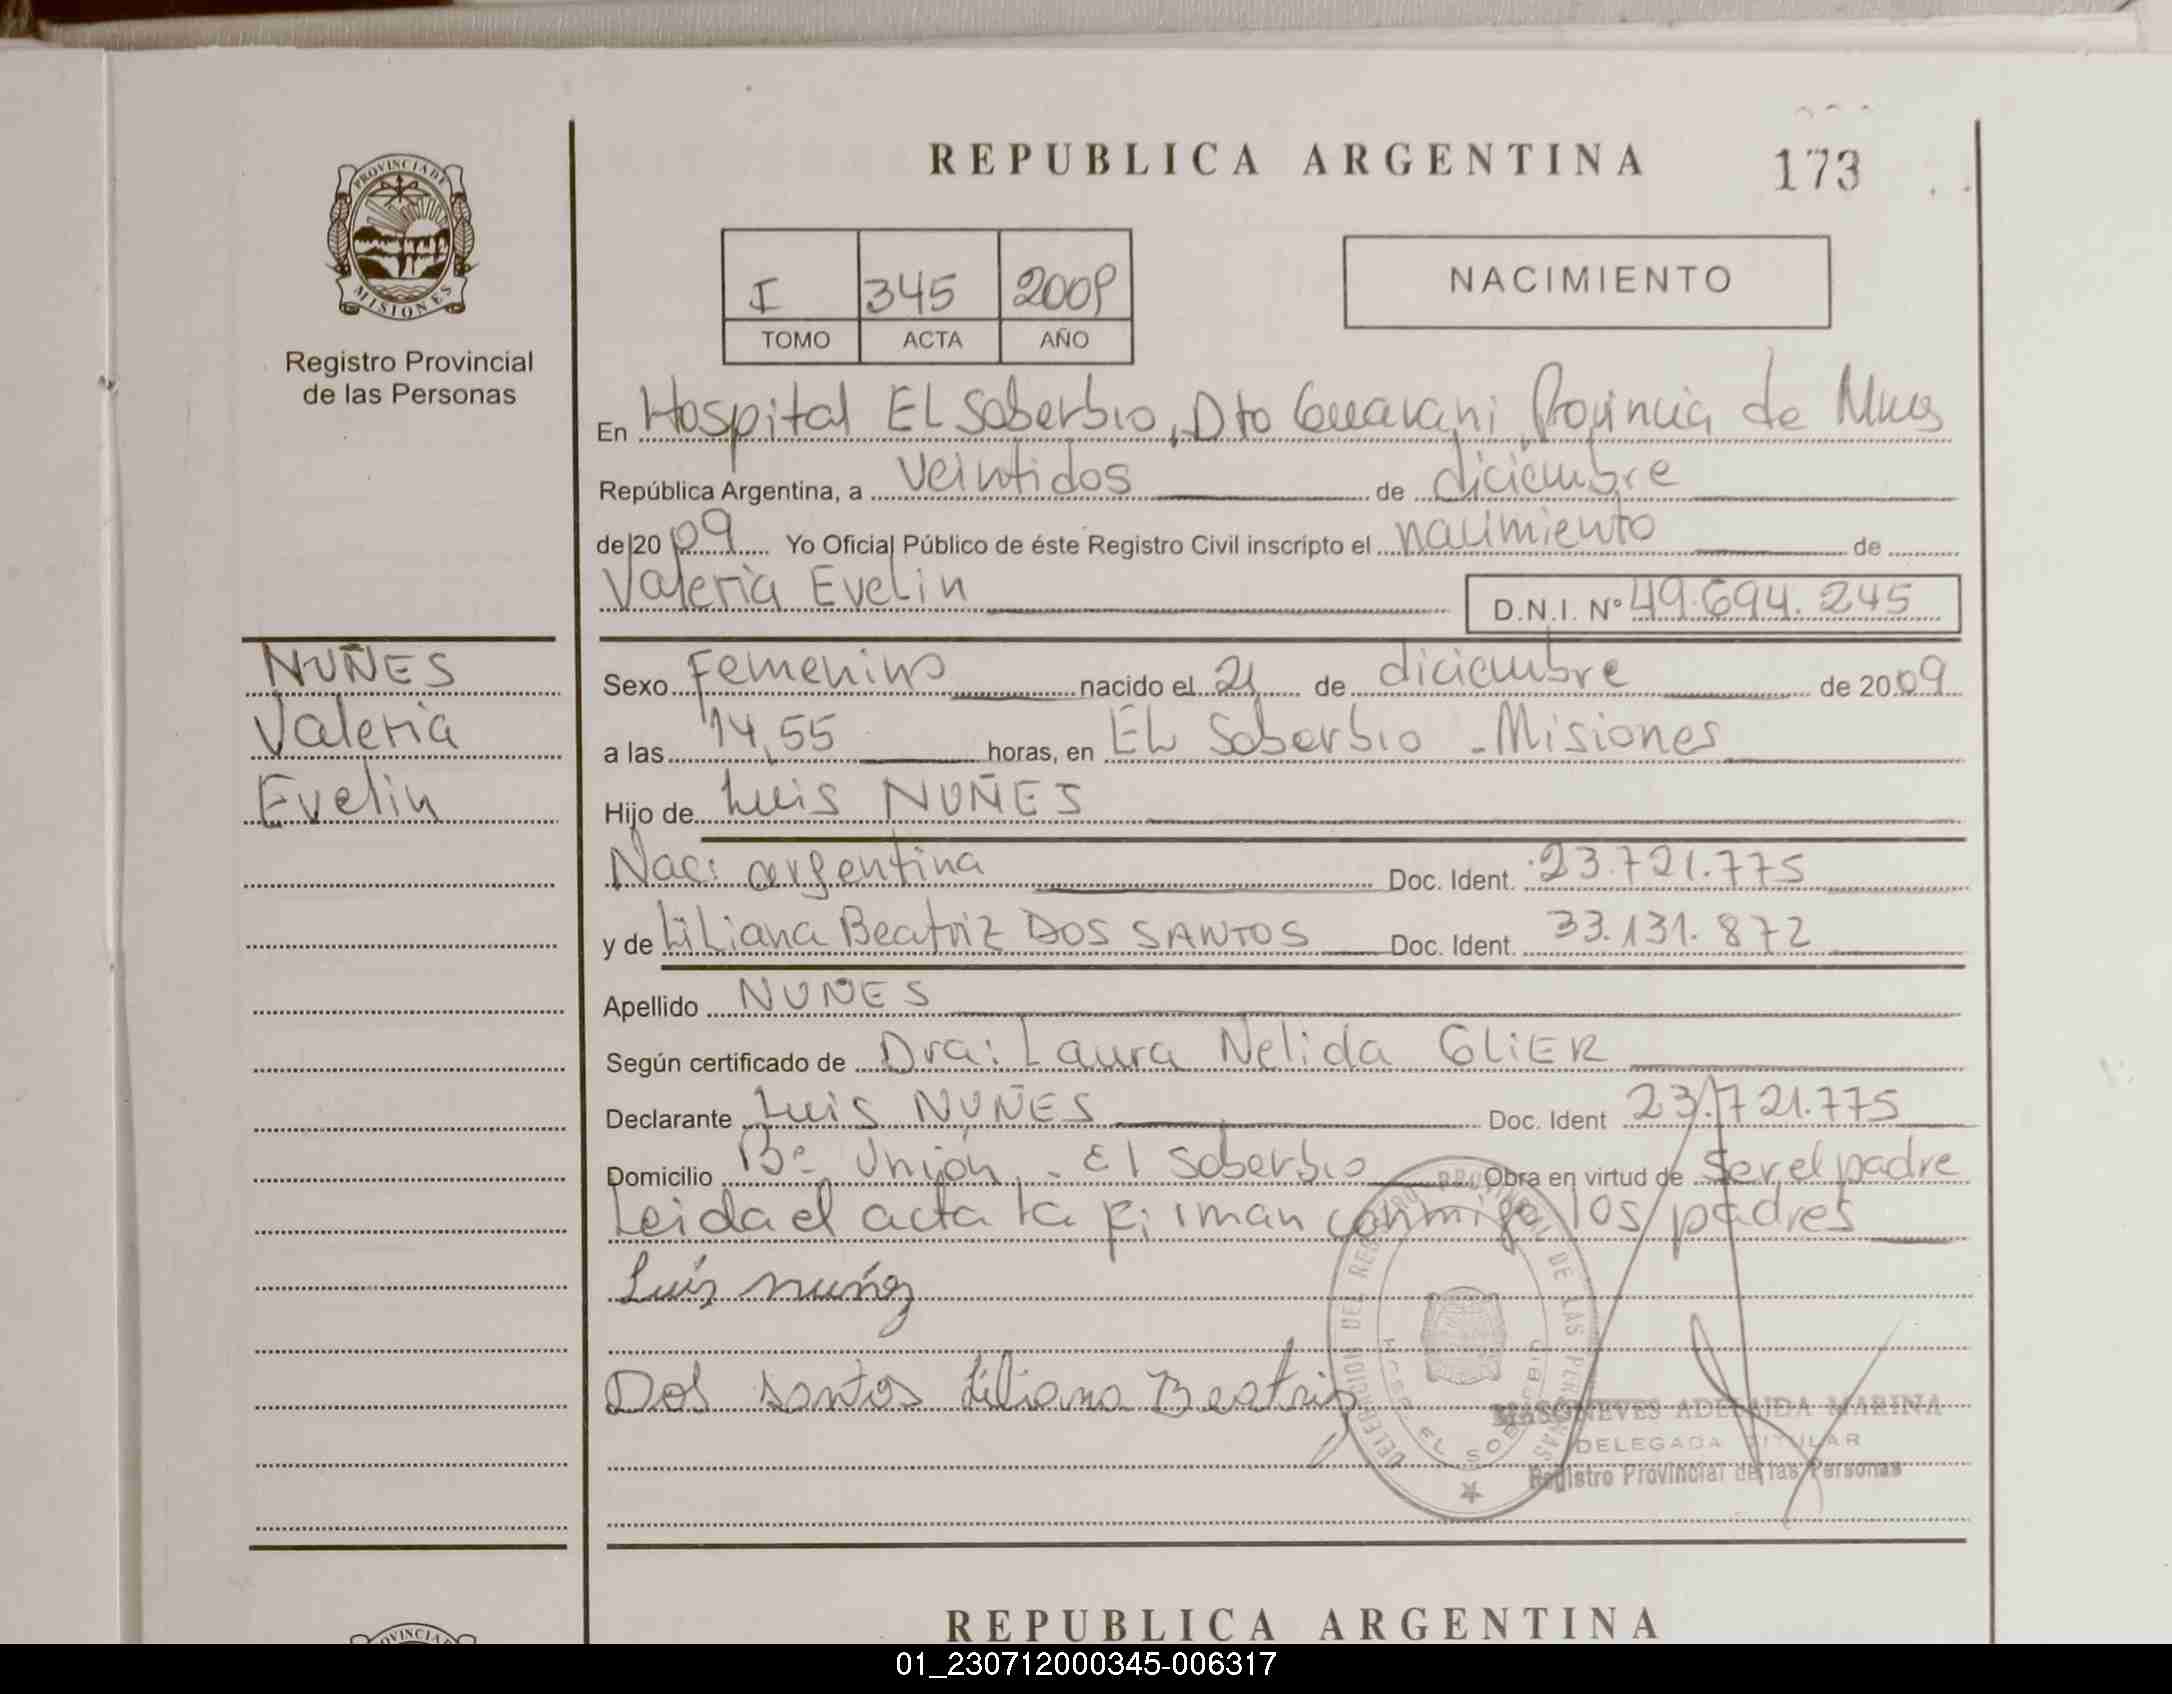 REPUBLICA ARGENTINA
173
PROVINCIA DE
MISIONES
Registro Provincial
de las Personas
I 345 2009
TOMO ACTA AÑO
NACIMIENTO
En Hospital EL Soberbio, Dto Guarani Provincia de Mnes
República Argentina, a veintidos de diciembre
de 20 09 Yo Oficial Público de éste Registro Civil inscripto el nacimiento de
Valeria Evelin D.N.I. Nº 49.694.245
NUÑES
Valeria
Evelin
Sexo Femenino nacido el 21 de diciembre de 20 09
a las 14,55 horas, en EL Soberbio - Misiones
Hijo de Luis NUÑES
Nac: argentina Doc. Ident. 23.721.775
y de LiLiana Beatriz DOS SANTOS Doc. Ident. 33.131.872
Apellido NUÑES
Según certificado de Dra: Laura Nelida GLiER
Declarante Luis NUÑES Doc. Ident 23.721.775
Domicilio Bº Unión - El Soberbio Obra en virtud de Ser el padre
Leida el acta la firman conmigo los padres
Luis nuñez
Dos santos Liliana Beatriz
DELEGACION DEL REGISTRO PROVINCIAL DE LAS PERSONAS
EL SOBERBIO
ADELAIDA MARINA
DELEGADA TITULAR
Registro Provincial de las Personas
REPUBLICA ARGENTINA
01_230712000345-006317